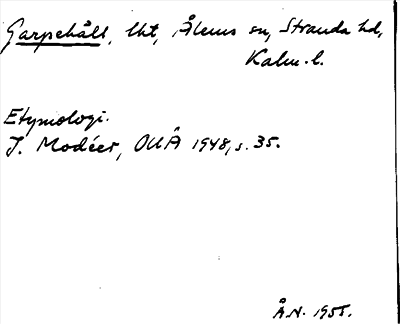 Garpehåll, lht, Ålems sn, Stranda hd,
Kalm. l.
Etymologi.
I. Modéer, OUÅ 1948, s. 35.
Å.N. 1955.